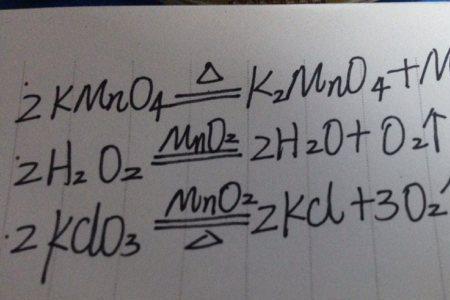 2KMnO₄ =Δ= K₂MnO₄+M
2H₂O₂ =MnO₂= 2H₂O+O₂↑
2KClO₃ =MnO₂/Δ= 2KCl+3O₂↑